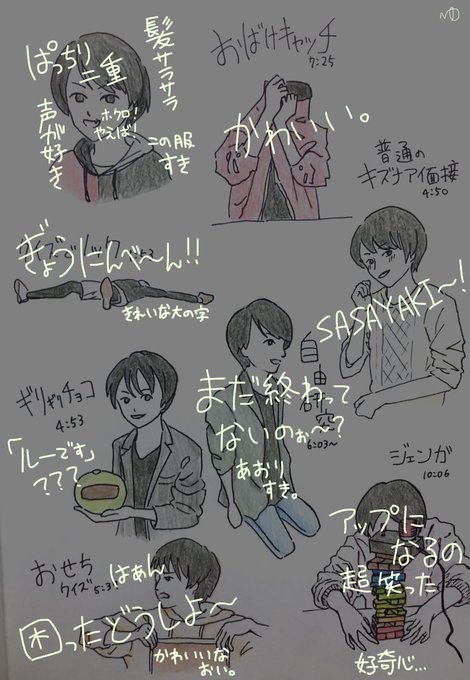 ぱっちり
二重
髪サラサラ
声が好き
ホクロ!
やえば!
この服
すき
おばけキャッチ
7:25
かわいい。
普通の
キズナアイ面接
4:50
ぎょうにんべ〜ん!!
きれいな大の字
SASAYAKI〜!
ギリギリチョコ
4:53
「ルーです」
???
自由研究
6:03〜
まだ終わって
ないのぉ〜?
あおり
すき。
ジェンガ
10:06
アップに
なるの
超笑った
好奇心…
おせち
クイズ
はぁん
困ったどうしよ〜
かわいいな
おい。